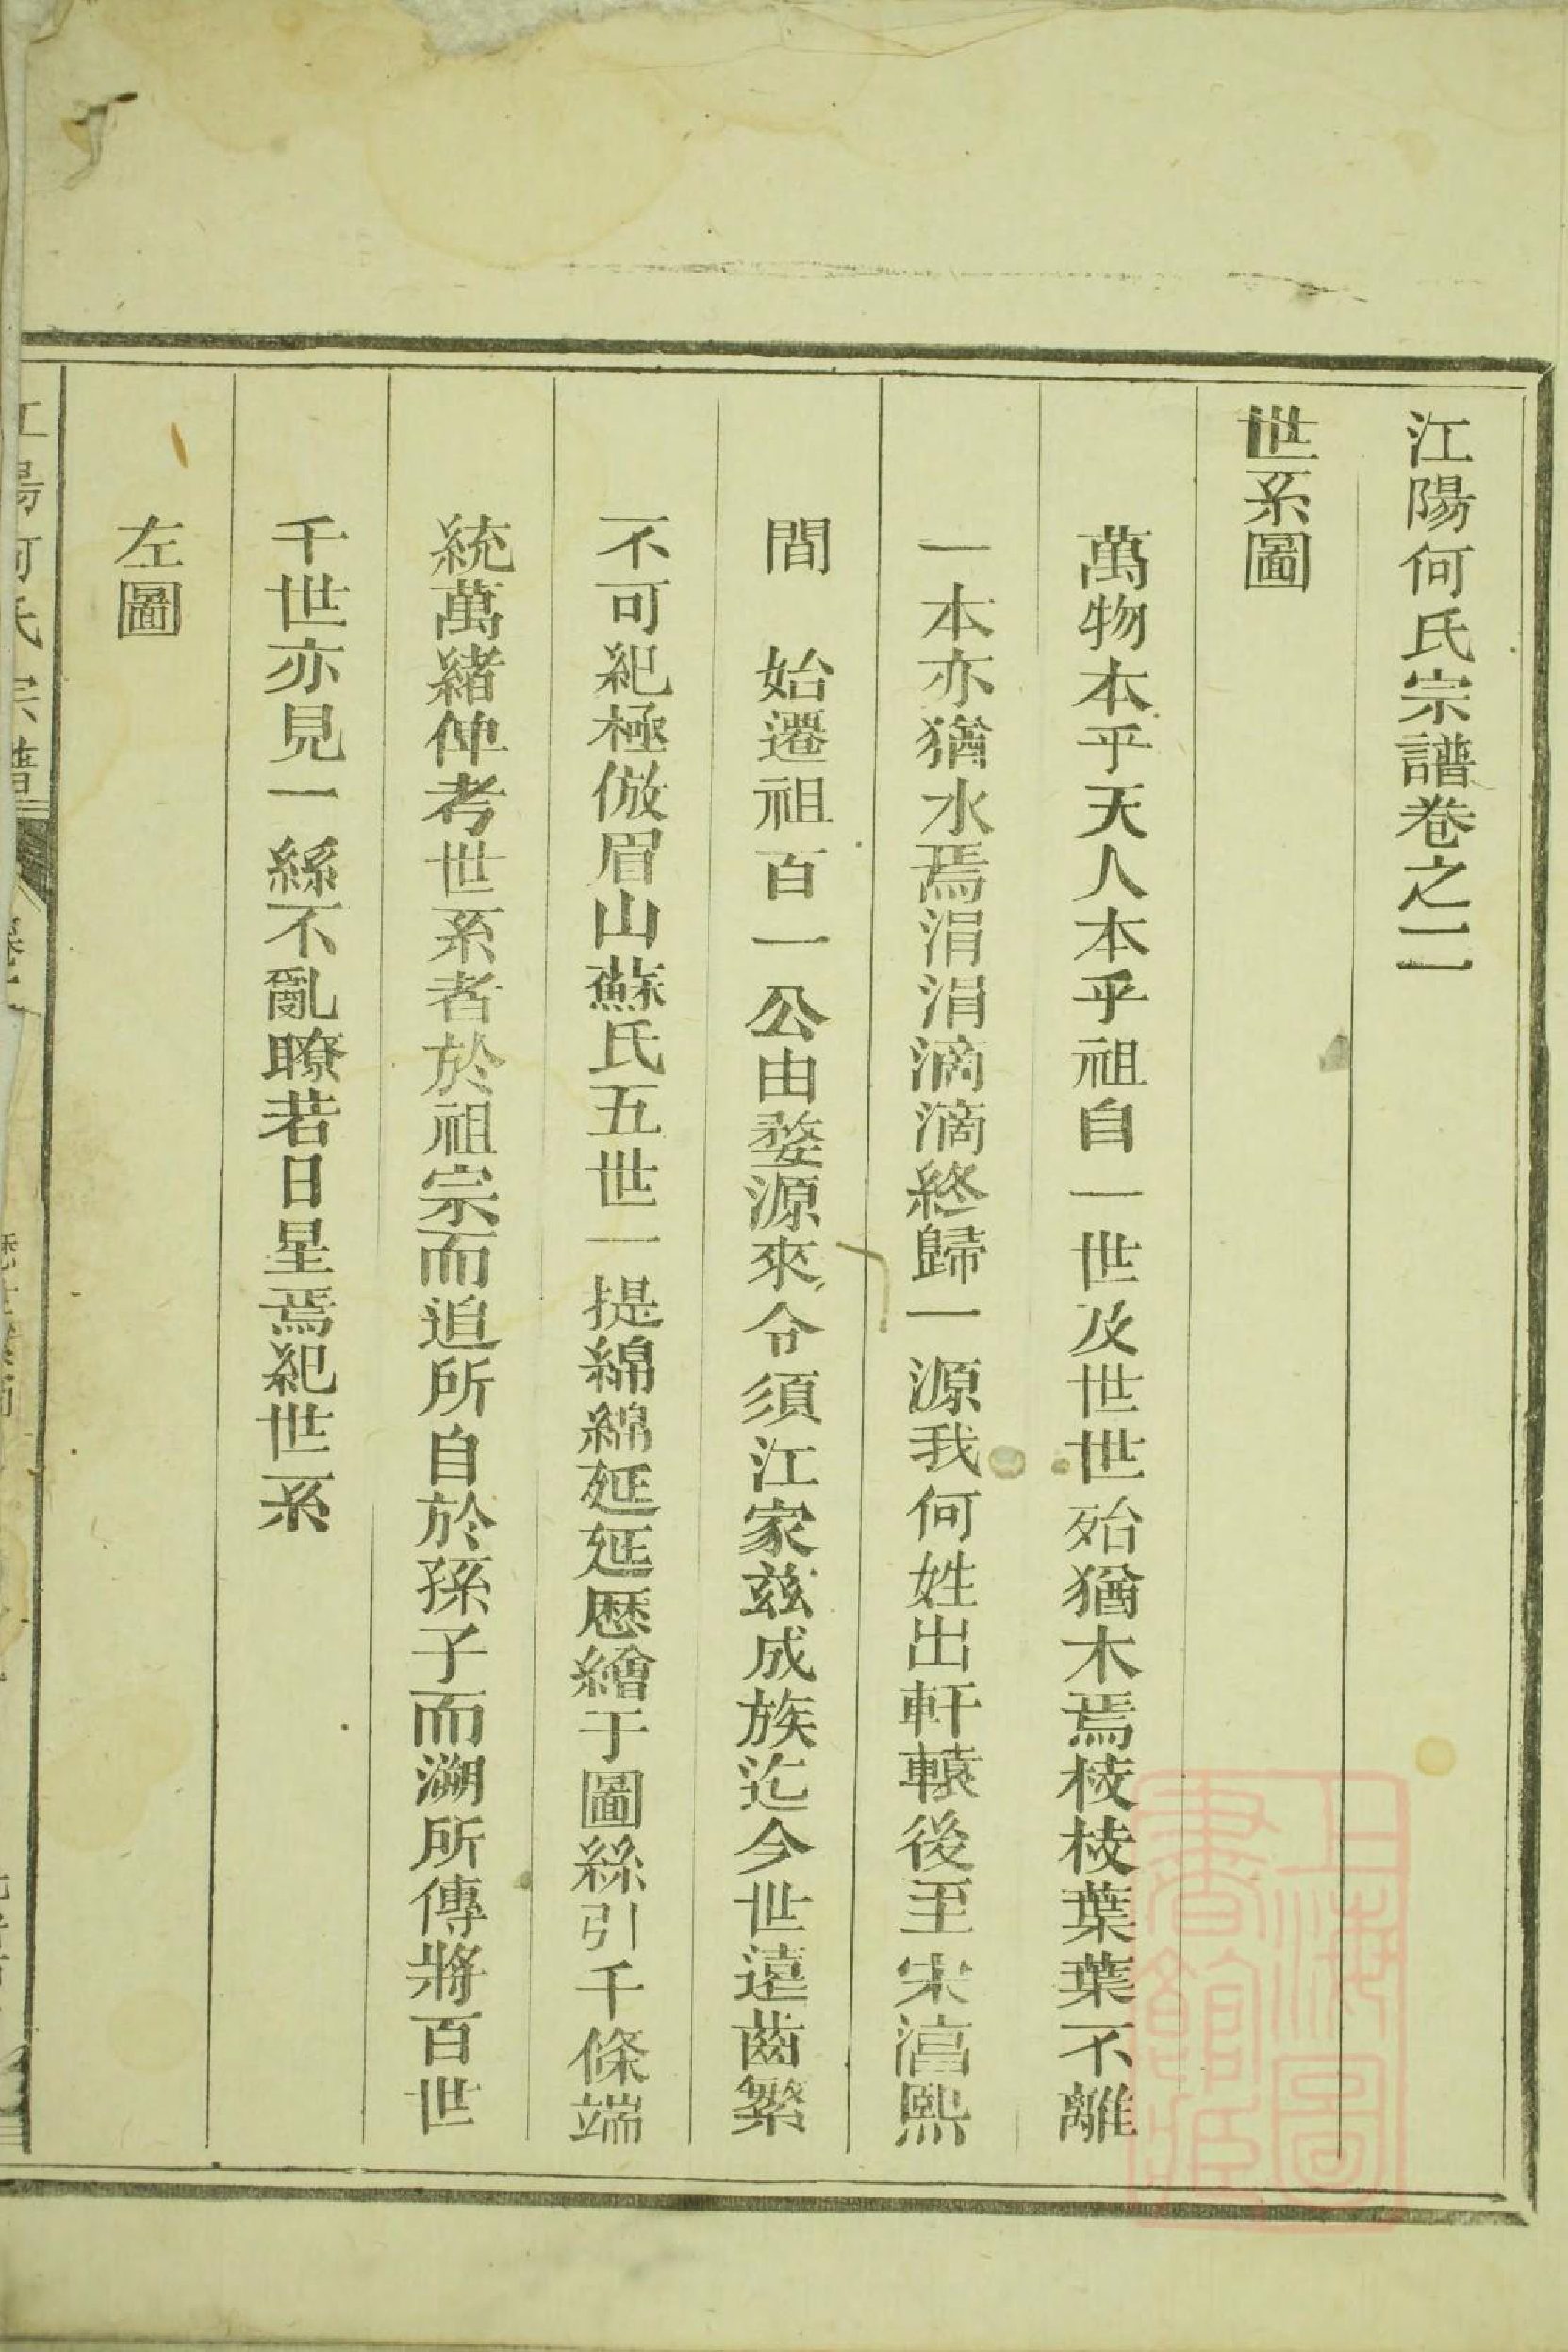 江陽何氏宗譜卷之二
世系圖
萬物本乎天人本乎祖自一世及世世殆猶木焉枝枝葉葉不離
一本亦猶水焉涓涓滴滴終歸一源我何姓出軒轅後至宋湻熙
間　始遷祖百一公由婺源來令須江家兹成族迄今世遠齒繁
不可紀極倣眉山蘇氏五世一提綿綿延延歷繪于圖絲引千條端
統萬緒俾考世系者於祖宗而追所自於孫子而溯所傳將百世
千世亦見一絲不亂瞭若日星焉紀世系
左圖
江陽何氏宗譜
上海圖書館藏